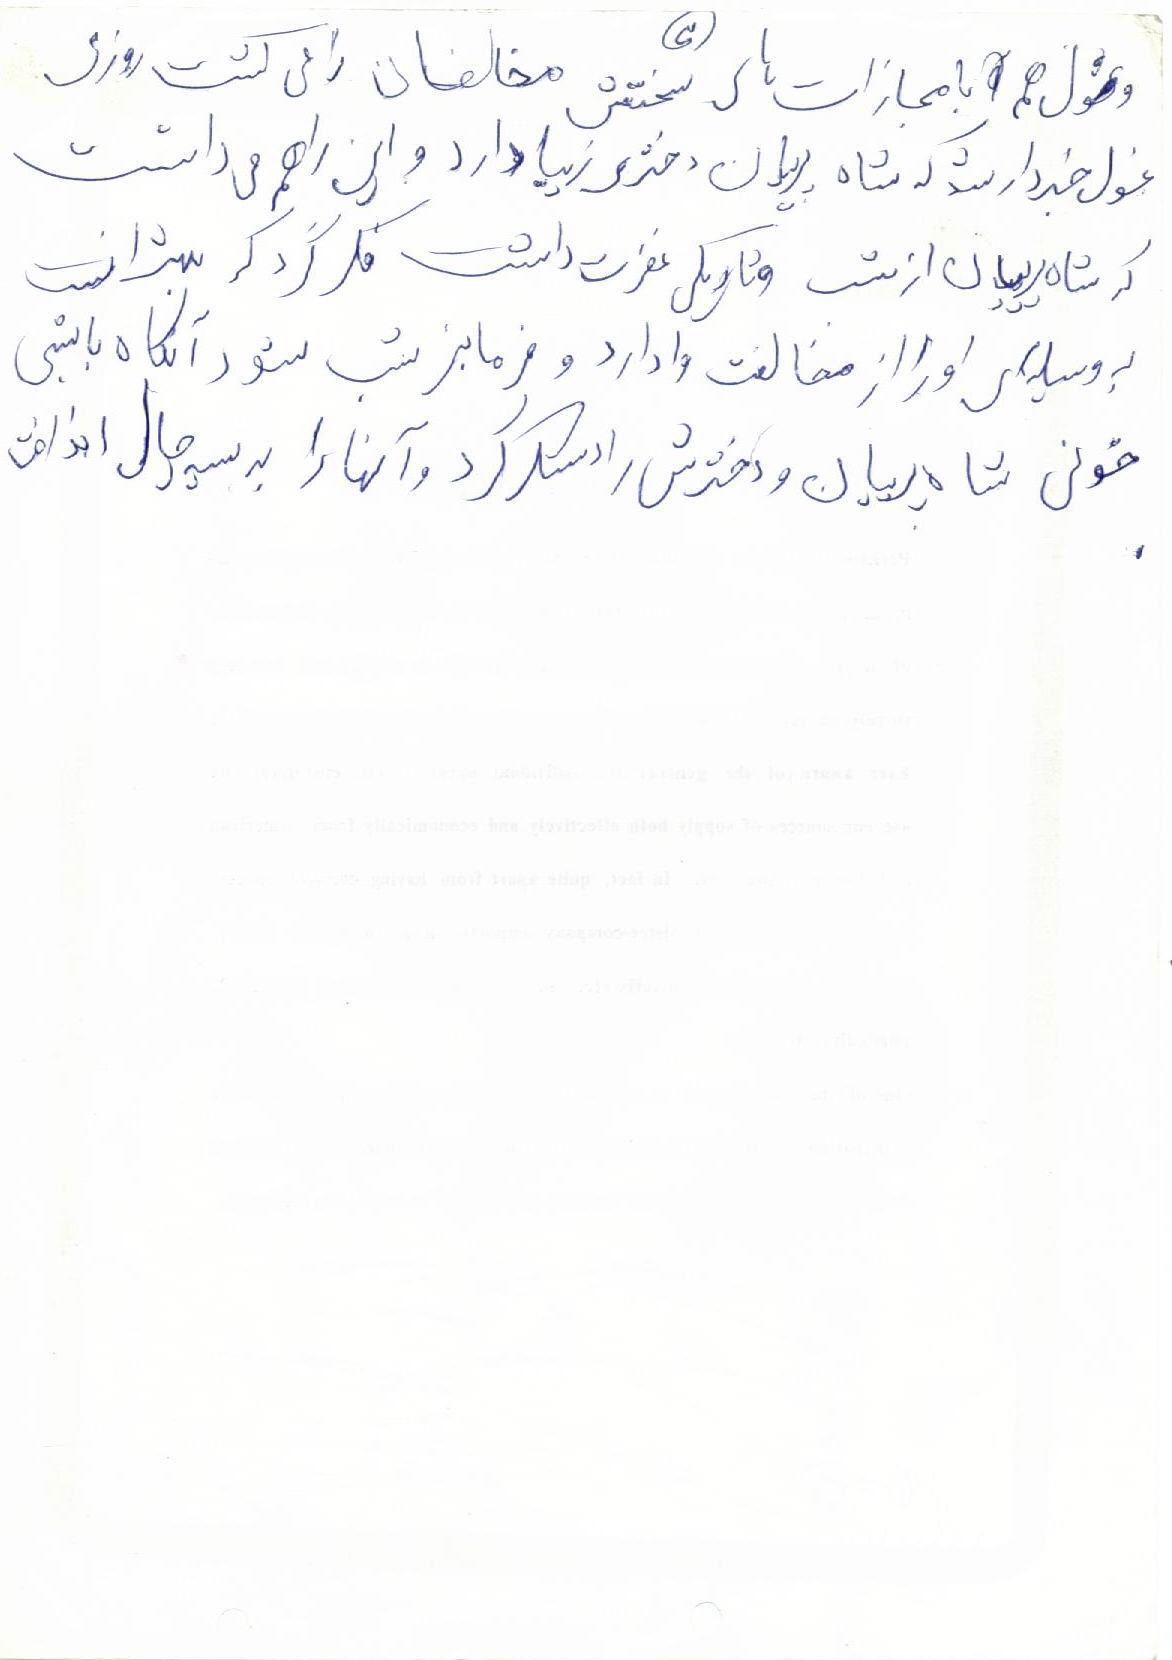 (۳)
و غول هم با مجازات های سختش مخالفان را می کشت روزی
غول خبردار شد که شاه پریان دختری زیبا دارد و این را هم می دانست
که شاه پریان از شب و تاریکی نفرت داشت فکر کرد که بهتر است
به وسیله‌ای او را از مخالفت وا دارد و فرمانبر شب شود آنگاه با شبی
خونی شاه پریان و دخترش را دستگیر کرد و آنها را به سیه چال انداخت
.